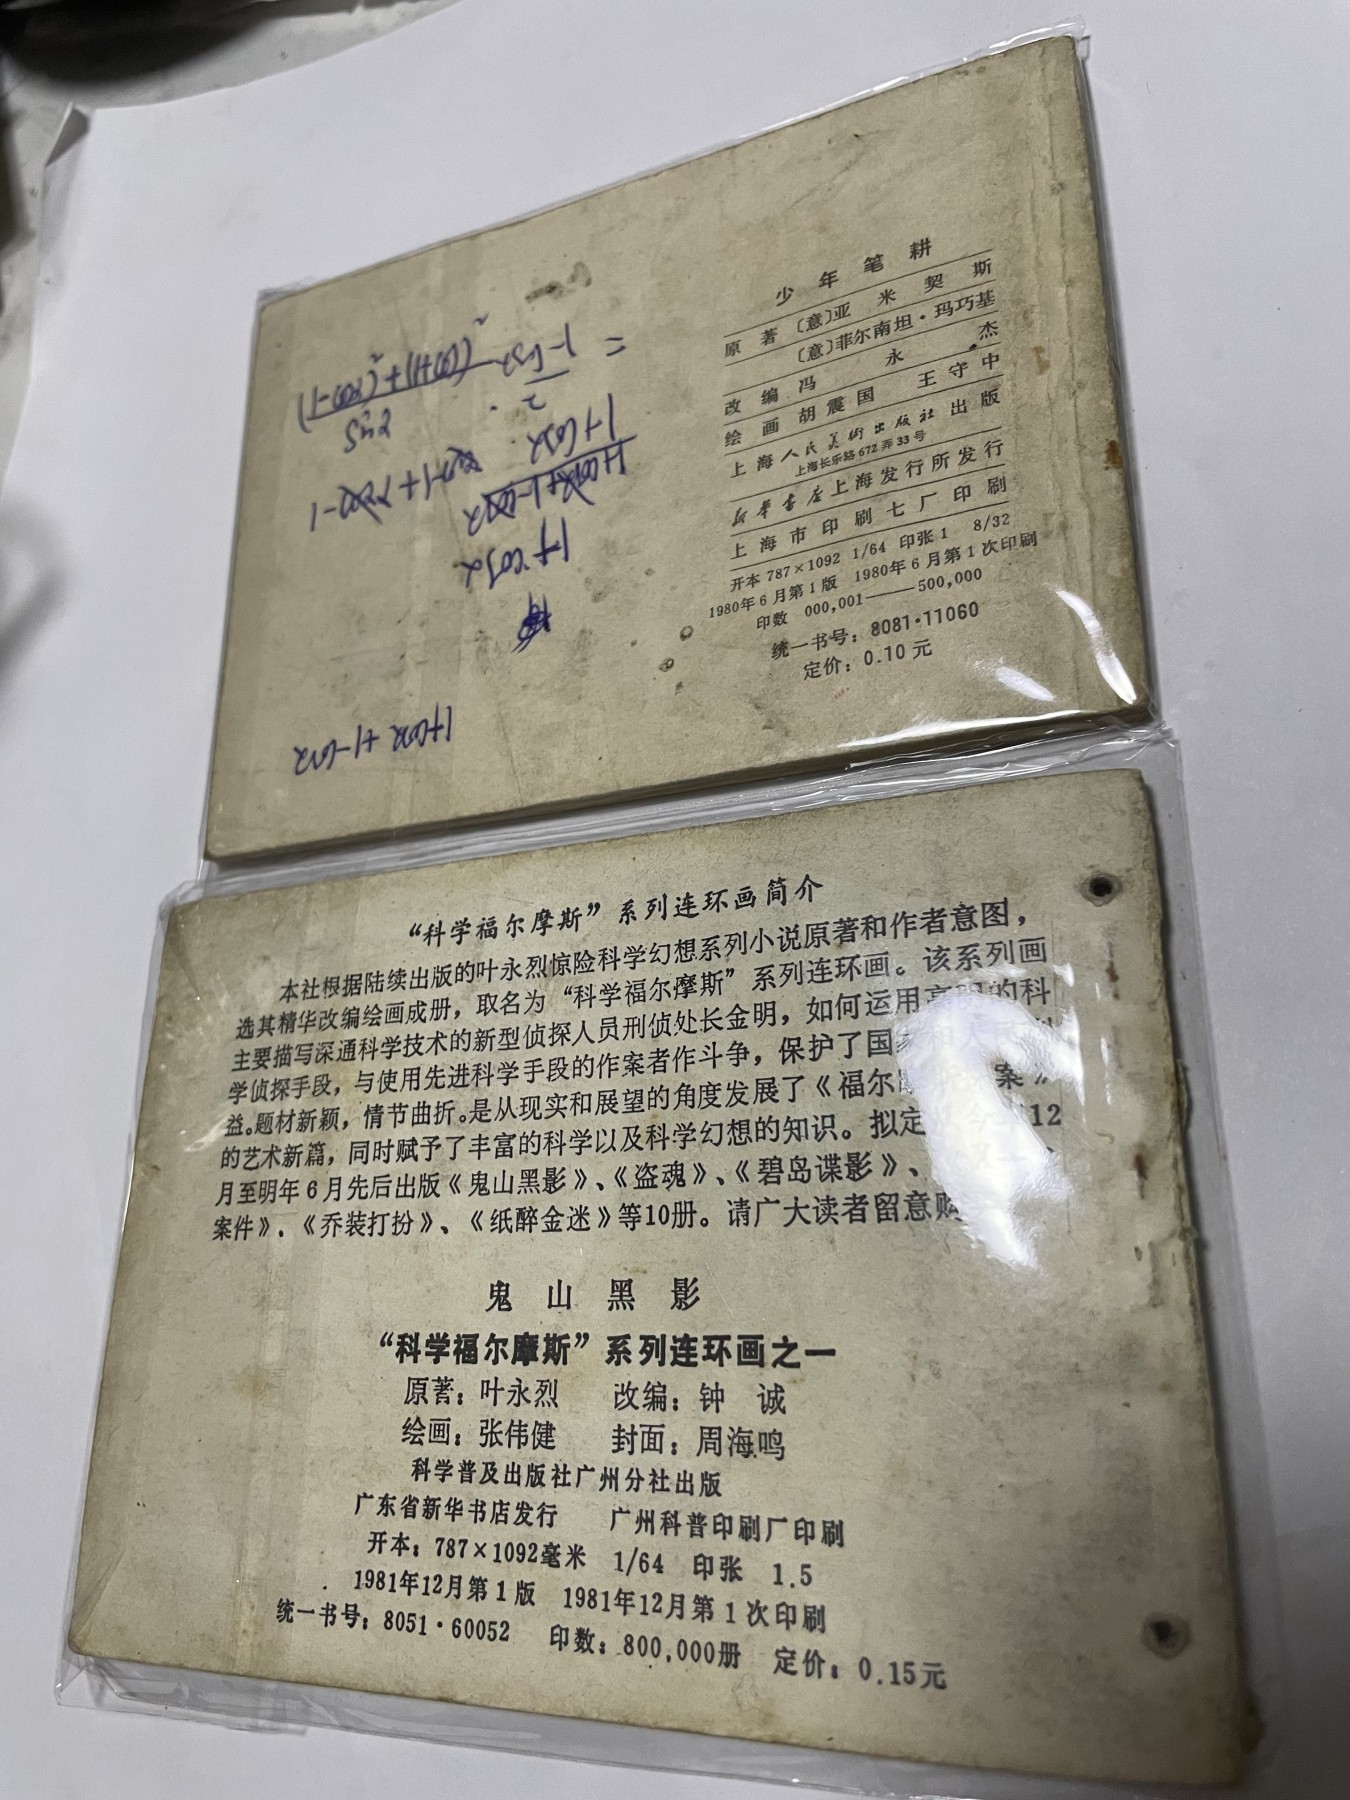 少年笔耕
原著〔意〕亚米契斯
〔意〕菲尔南坦·玛巧基
改编 冯永杰
绘画 胡震国 王守中
上海人民美术出版社出版
上海长乐路672弄33号
新华书店上海发行所发行
上海市印刷七厂印刷
开本 787×1092 1/64 印张1 8/32
1980年6月第1版 1980年6月第1次印刷
印数 000,001——500,000
统一书号：8081·11060
定价：0.10元
1+cosα
1+cosα+1-cosα
“科学福尔摩斯”系列连环画简介
本社根据陆续出版的叶永烈惊险科学幻想系列小说原著和作者意图，
选其精华改编绘画成册，取名为“科学福尔摩斯”系列连环画。该系列画
主要描写深通科学技术的新型侦探人员刑侦处长金明，如何运用的科
学侦探手段，与使用先进科学手段的作案者作斗争，保护了国
益。题材新颖，情节曲折。是从现实和展望的角度发展了《福尔案》
的艺术新篇，同时赋予了丰富的科学以及科学幻想的知识。拟定12
月至明年6月先后出版《鬼山黑影》、《盗魂》、《碧岛谍影》、
案件》．《乔装打扮》、《纸醉金迷》等10册。请广大读者留意购
鬼山黑影
“科学福尔摩斯”系列连环画之一
原著：叶永烈 改编：钟诚
绘画：张伟健 封面：周海鸣
科学普及出版社广州分社出版
广东省新华书店发行 广州科普印刷厂印刷
开本：787×1092毫米 1/64 印张 1.5
1981年12月第1版 1981年12月第1次印刷
统一书号：8051·60052 印数：800,000册 定价：0.15元